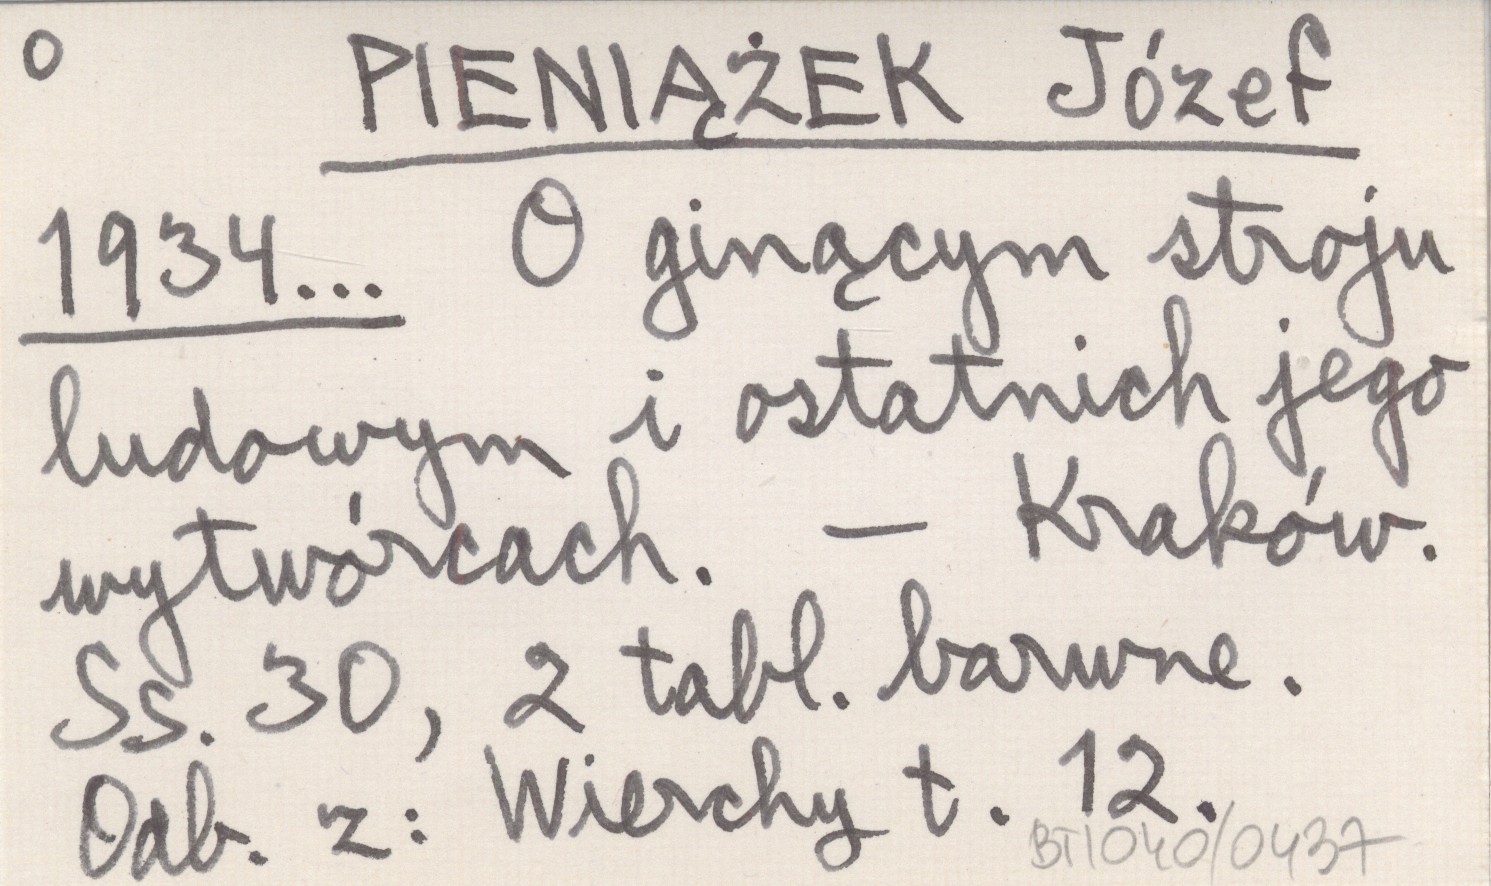 o PIENIĄŻEK Józef
1934... O ginącym stroju
ludowym i ostatnich jego
wytwórcach. — Kraków.
Ss. 30, 2 tabl. barwne.
Odb. z: Wierchy t. 12.
BT1040/0437